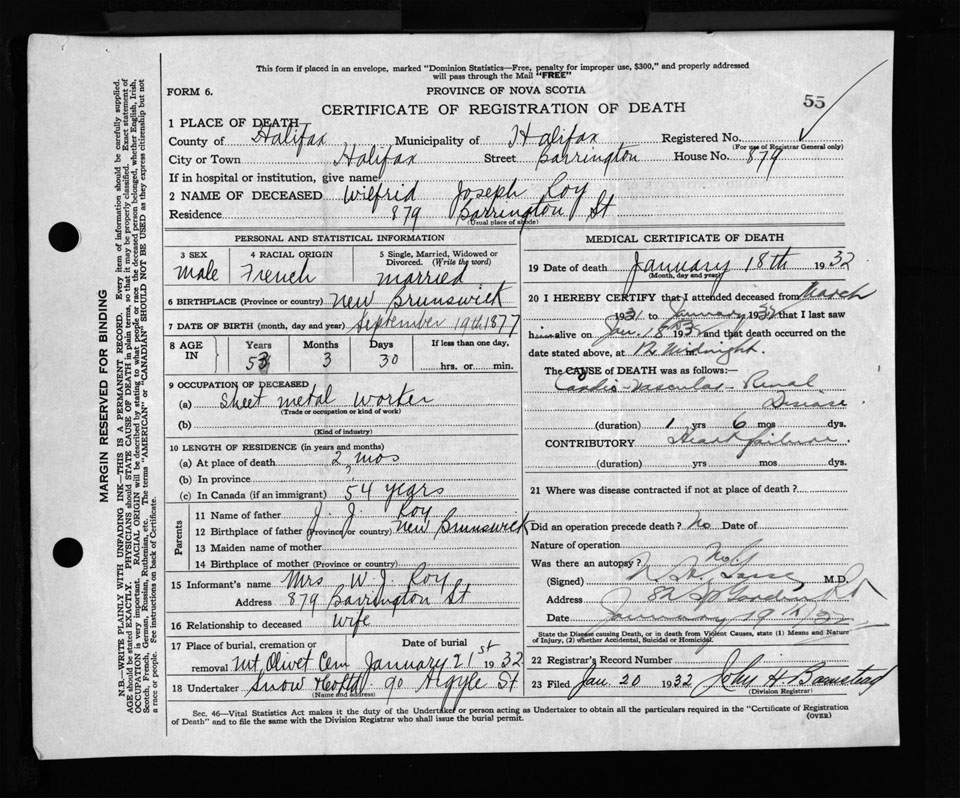 This form if placed in an envelope, marked "Dominion Statistics—Free, penalty for improper use, $300," and properly addressed
will pass through the Mail "FREE"
FORM 6.
PROVINCE OF NOVA SCOTIA
55
CERTIFICATE OF REGISTRATION OF DEATH
1 PLACE OF DEATH
County of Halifax Municipality of Halifax Registered No.
(For use of Registrar General only)
City or Town Halifax Street Barrington House No. 879
If in hospital or institution, give name
2 NAME OF DECEASED Wilfrid Joseph Roy
Residence 879 Barrington St
(Usual place of abode)
PERSONAL AND STATISTICAL INFORMATION
3 SEX 4 RACIAL ORIGIN 5 Single, Married, Widowed or
Divorced. (Write the word)
Male French married
6 BIRTHPLACE (Province or country) New Brunswick
7 DATE OF BIRTH (month, day and year) September 19th 1877
8 AGE IN Years Months Days If less than one day,
3 30 hrs. or min.
9 OCCUPATION OF DECEASED
(a) Sheet metal Worker
(Trade or occupation or kind of work)
(b)
(Kind of industry)
10 LENGTH OF RESIDENCE (in years and months)
(a) At place of death 2 mos
(b) In province
(c) In Canada (if an immigrant) 54 years
Parents
11 Name of father J. J. Roy
12 Birthplace of father (Province or country) New Brunswick
13 Maiden name of mother
14 Birthplace of mother (Province or country)
15 Informant's name Mrs W. J. Roy
Address 879 Barrington St
16 Relationship to deceased wife
17 Place of burial, cremation or Date of burial
removal Mt Olivet Cem January 21st 1932
18 Undertaker Snow 90 Argyle St
(Name and address)
MEDICAL CERTIFICATE OF DEATH
19 Date of death January 18th 1932
(Month, day and year)
20 I HEREBY CERTIFY that I attended deceased from March
1931 to January 1932 that I last saw
him alive on Jan. 18 and that death occurred on
date stated above, at 12 Midnight.
The CAUSE of DEATH was as follows:
Cardio-Vascular-Renal
Disease
(duration) 1 yrs 6 mos dys.
CONTRIBUTORY Heart failure
(duration) yrs mos dys.
21 Where was disease contracted if not at place of death?
Did an operation precede death? No Date of
Nature of operation
Was there an autopsy? No
(Signed) M.D.
Address
Date January 19th/32
State the Disease causing Death, or in death from Violent Causes, state (1) Means and Nature
of Injury, (2) whether Accidental, Suicidal or Homicidal.
22 Registrar's Record Number
23 Filed Jan. 20 1932 John H Barnstead
(Division Registrar)
Sec. 46—Vital Statistics Act makes it the duty of the Undertaker or person acting as Undertaker to obtain all the particulars required in the "Certificate of Registration
of Death" and to file the same with the Division Registrar who shall issue the burial permit.
(OVER)
MARGIN RESERVED FOR BINDING
N.B.—WRITE PLAINLY WITH UNFADING INK—THIS IS A PERMANENT RECORD. Every item of information should be carefully supplied.
AGE should be stated EXACTLY. PHYSICIANS should STATE CAUSE OF DEATH in plain terms, so that it may be properly classified. Exact statement of
OCCUPATION is very important. RACIAL ORIGIN will be described by stating to what people or race the deceased person belonged, whether English, Irish,
Scotch, French, German, Russian, Ruthenian, etc. The terms "AMERICAN" or "CANADIAN" SHOULD NOT BE USED as they express citizenship but not
a race or people. See instructions on back of Certificate.